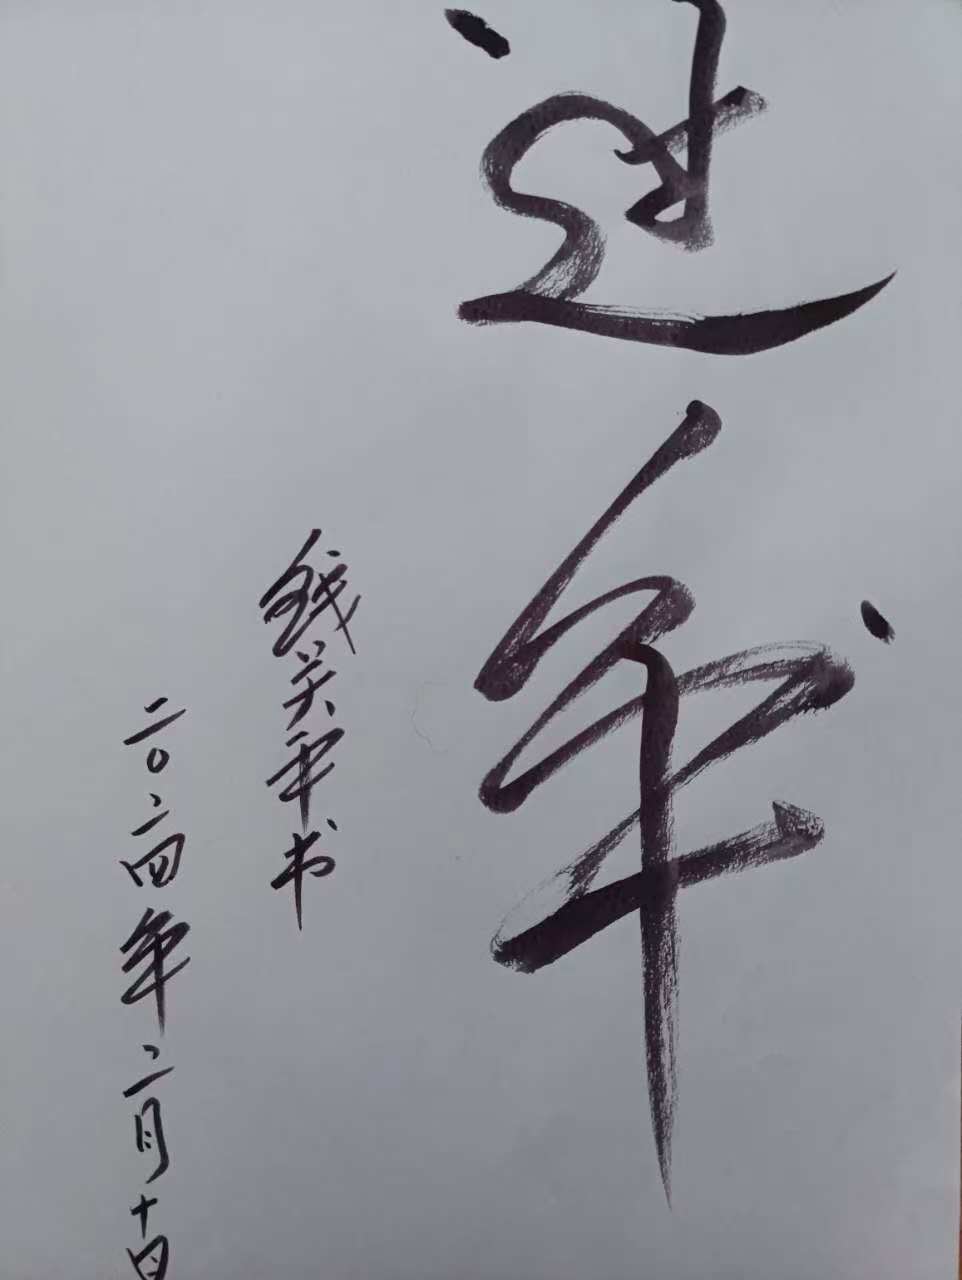 过年
钱关书
二〇二四年二月十日